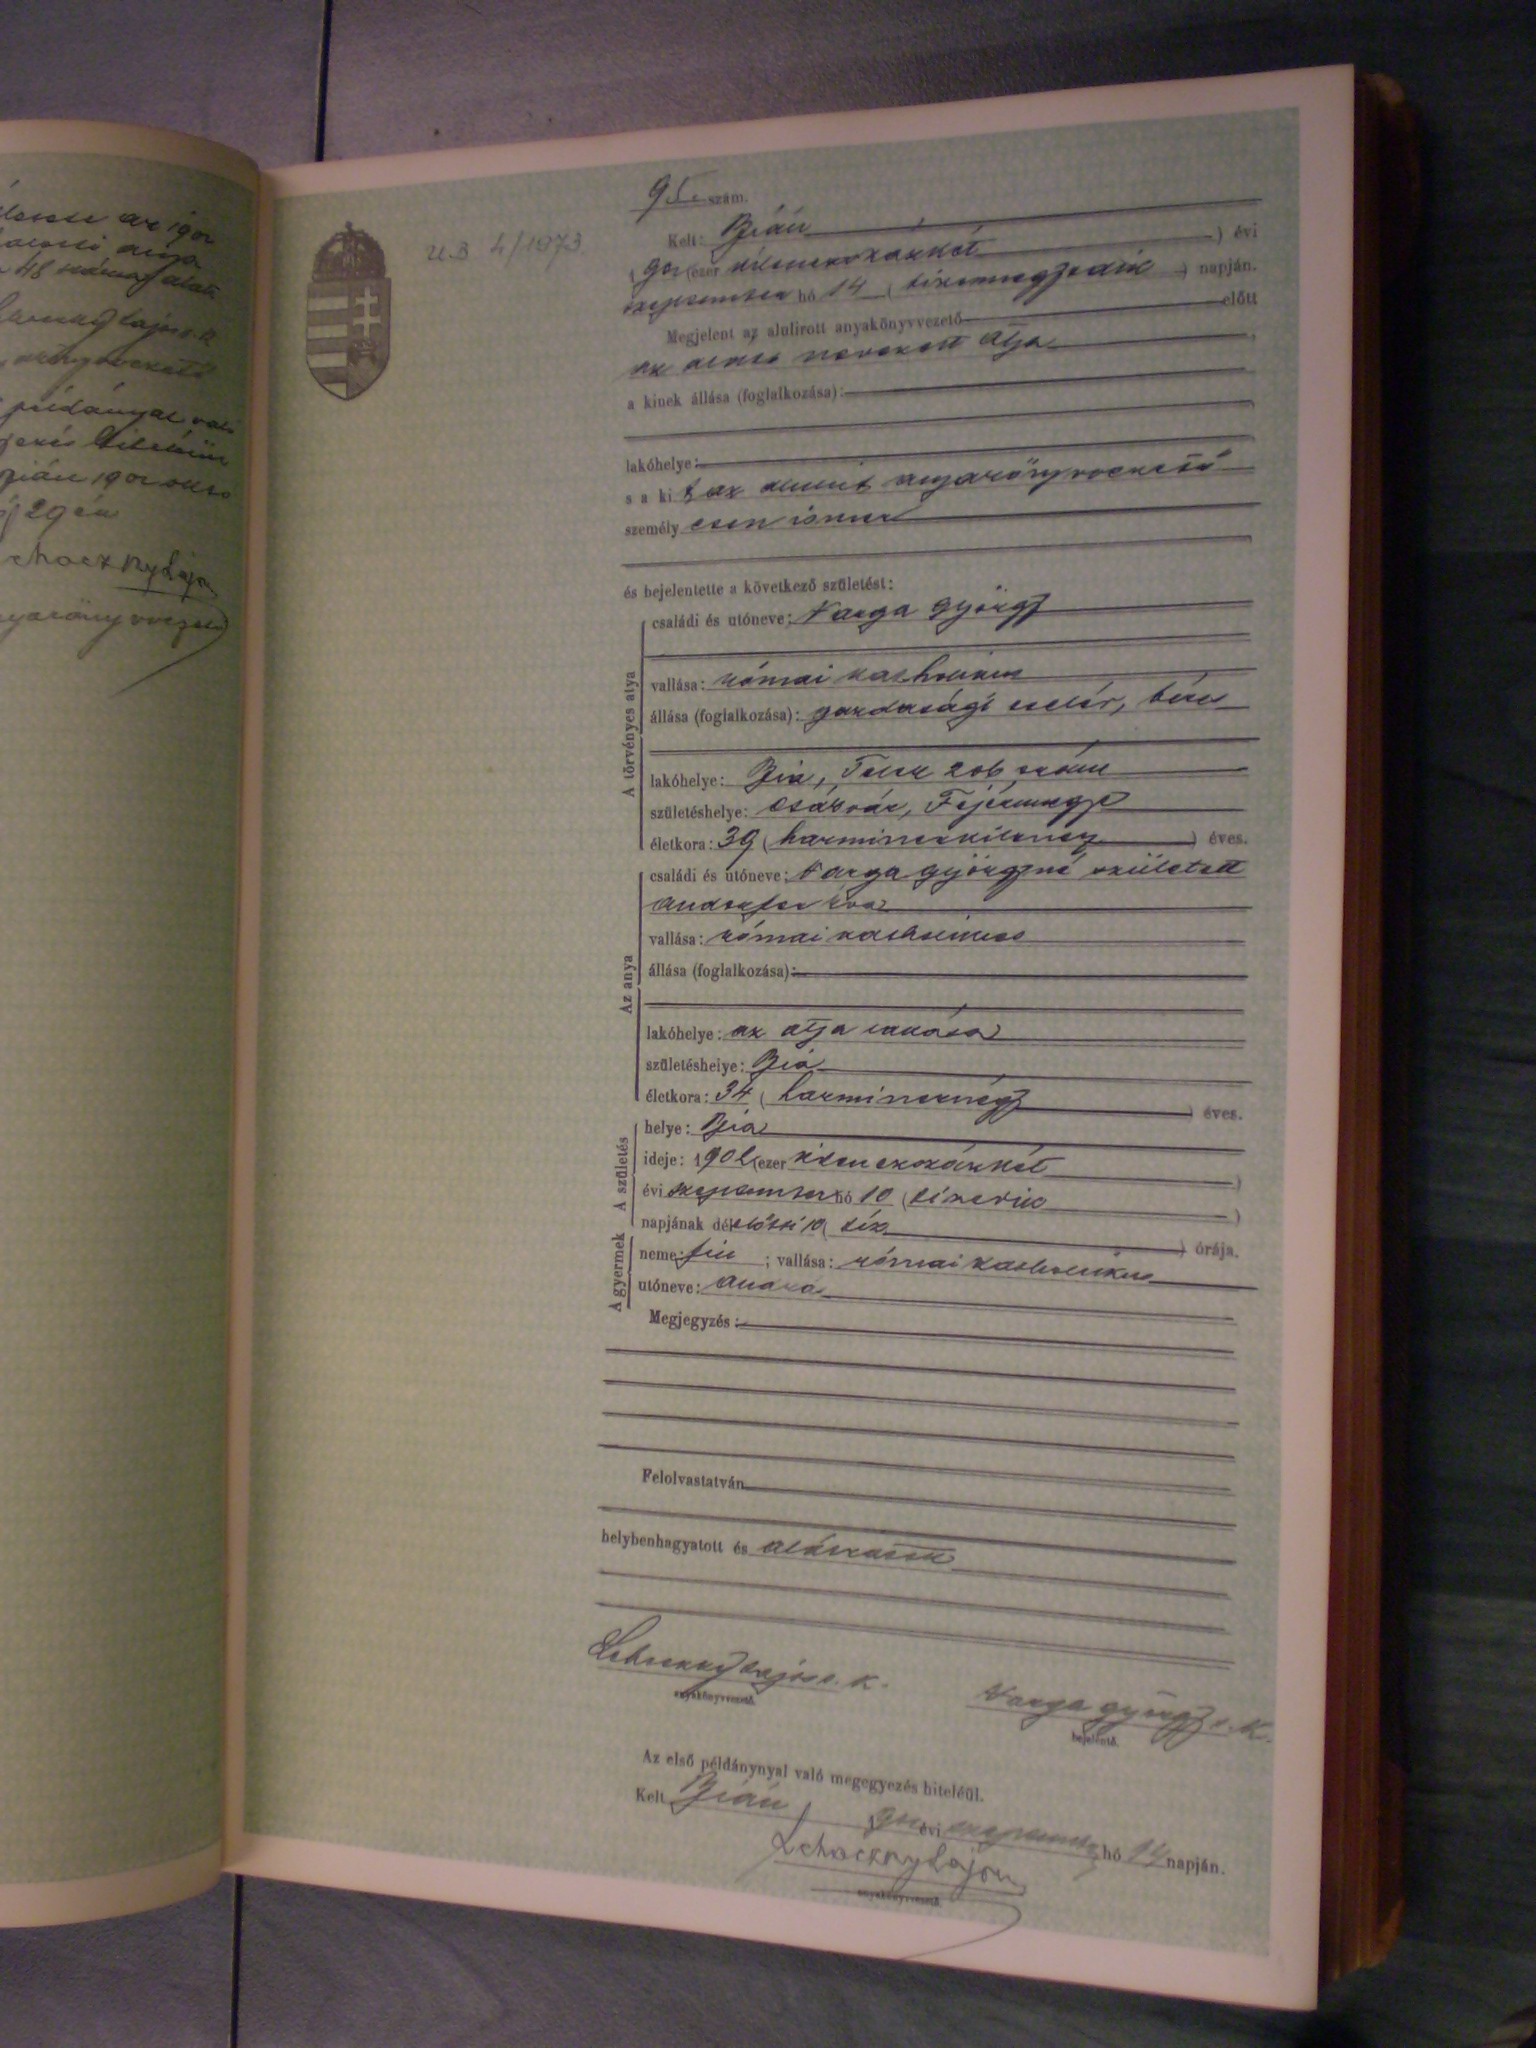 48
29én
U.B 4/1973.
95. szám.
Kelt: Bián ) évi
1902 (ezer kilenczszázkét
szeptember hó 14 ( tizennegyedik ) napján.
Megjelent az alulirott anyakönyvvezető előtt
az alább nevezett atya
a kinek állása (foglalkozása):
lakóhelye:
s a ki t az alulirt anyakönyvvezető
személy esen ismer
és bejelentette a következő születést:
A törvényes atya
családi és utóneve: Varga György
vallása: római katholikus
állása (foglalkozása): gazdasági cseléd, béres
lakóhelye: Bia, 206 szám
születéshelye: Csákvár, Fejérmegye
életkora: 39 ( harminczkilencz ) éves.
Az anya
családi és utóneve: Varga Györgyné született
Éva
vallása: római katholikus
állása (foglalkozása):
lakóhelye: az atya lakása
születéshelye: Bia
életkora: 34 ( harmincznégy ) éves.
A születés
helye: Bia
ideje: 1902 (ezer kilenczszázkét )
évi szeptember hó 10 ( tizedik )
napjának délelőtti 10 ( tíz ) órája.
A gyermek
neme: fiu ; vallása: római katholikus
utóneve: András
Megjegyzés:
Felolvastatván
helybenhagyatott és aláiratott
Lajos s. k.
anyakönyvvezető.
Varga György s. k.
bejelentő.
Az első példánynyal való megegyezés hiteléül.
Kelt Bián, 1902 évi szeptember hó 14 napján.
Lajos
anyakönyvvezető.